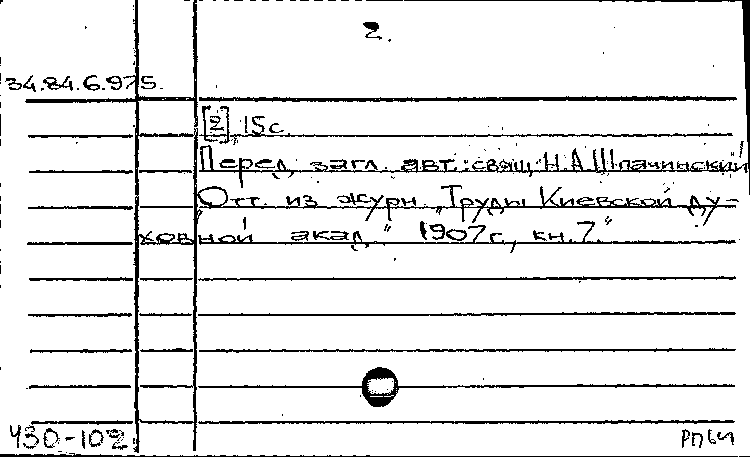 2.
34.84.6.975.
[2], 15 с.
Перед загл. авт.: свящ. Н.А. Шпачинский
"Отт. из журн. "Труды Киевской ду-
ховной акад." 1907 г., кн. 7."
430-102